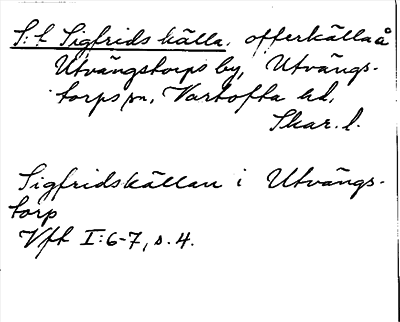 S:t Sigfrids källa, offerkälla å
Utvängstorps by, Utvängs-
torps sn, Vartofta hd,
Skar. l.
Sigfridskällan i Utvängs-
torp
Vft I:6-7, s. 4.